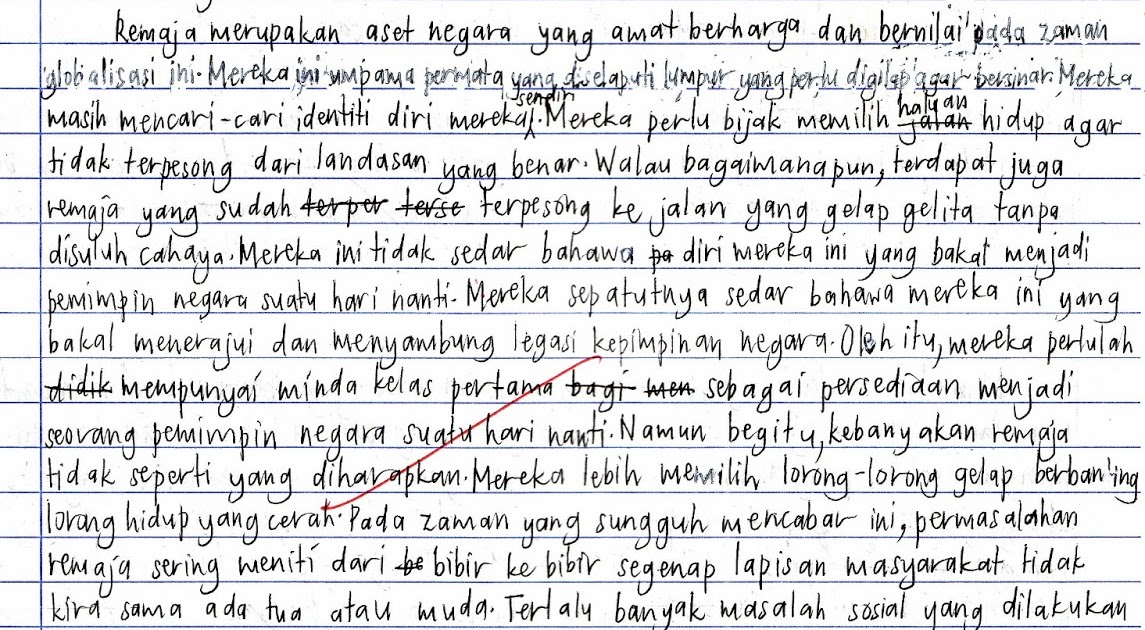 Remaja merupakan aset negara yang amat berharga dan bernilai pada zaman
globalisasi ini. Mereka ini umpama permata yang diselaputi lumpur yang perlu digilap agar bersinar. Mereka
masih mencari-cari identiti diri mereka sendiri. Mereka perlu bijak memilih jalan haluan hidup agar
tidak terpesong dari landasan yang benar. Walau bagaimanapun, terdapat juga
remaja yang sudah terper terse terpesong ke jalan yang gelap gelita tanpa
disuluh cahaya. Mereka ini tidak sedar bahawa pa diri mereka ini yang bakal menjadi
pemimpin negara suatu hari nanti. Mereka sepatutnya sedar bahawa mereka ini yang
bakal menerajui dan menyambung legasi kepimpinan negara. Oleh itu, mereka perlulah
didik mempunyai minda kelas pertama bagi men sebagai persediaan menjadi
seorang pemimpin negara suatu hari nanti. Namun begitu, kebanyakan remaja
tidak seperti yang diharapkan. Mereka lebih memilih lorong-lorong gelap berbanding
lorong hidup yang cerah. Pada zaman yang sungguh mencabar ini, permasalahan
remaja sering meniti dari be bibir ke bibir segenap lapisan masyarakat tidak
kira sama ada tua atau muda. Terlalu banyak masalah sosial yang dilakukan